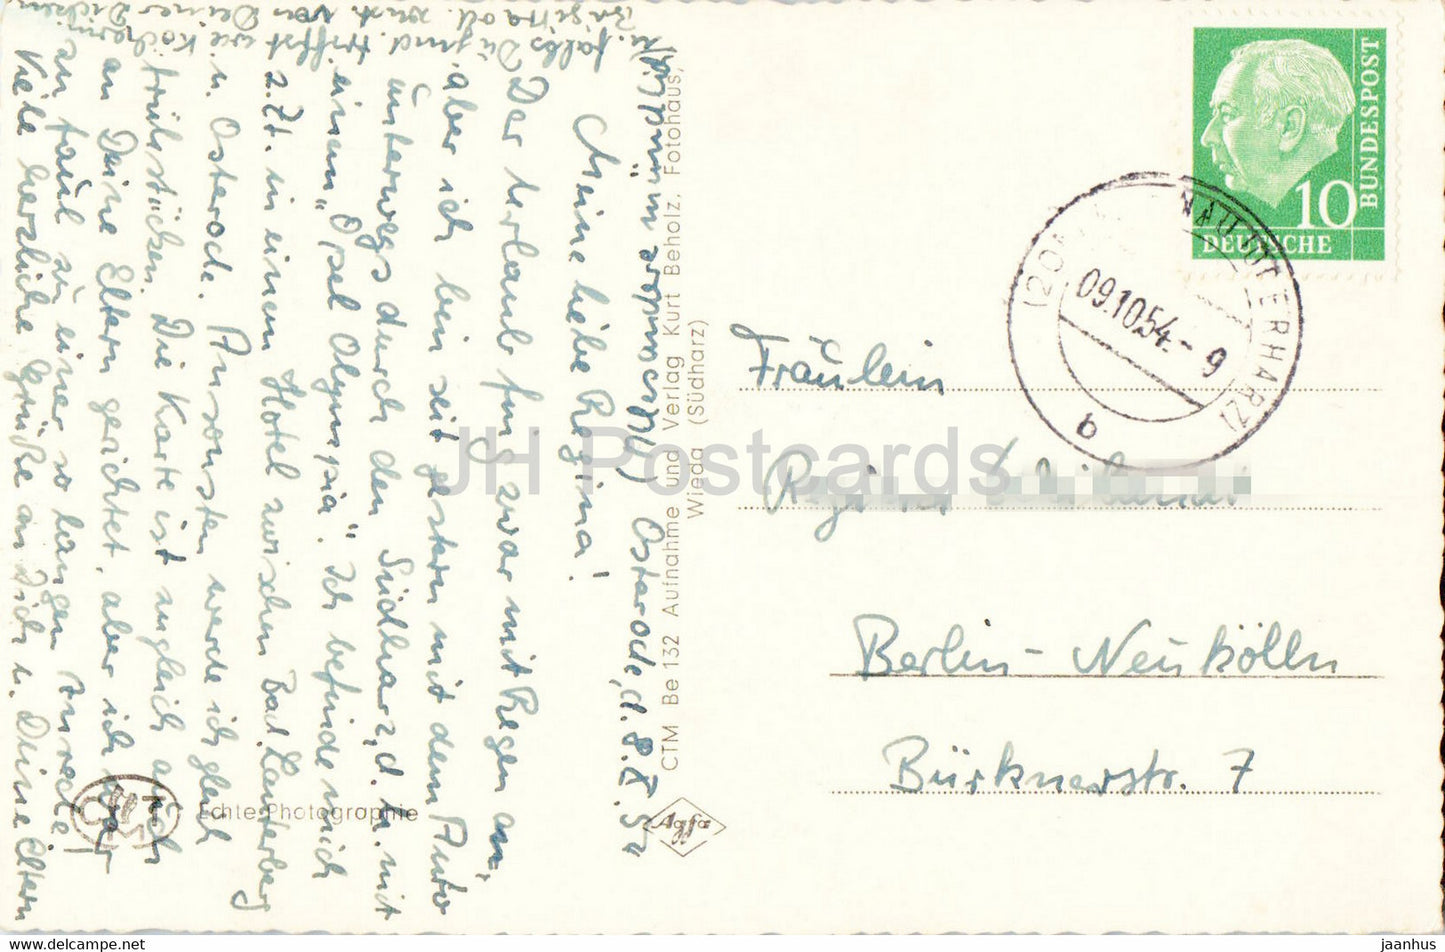 Osterode, d. 8.X.54
Meine liebe Regina!
Der Urlaub fing zwar mit Regen an,
aber ich bin seit gestern mit dem Auto
unterwegs durch den Südharz, d. h. mit
einem „Opel Olympia". Ich befinde mich
z. Zt. in einem Hotel zwischen Bad Lauterberg
u. Osterode. Ansonsten werde ich gleich
frühstücken. Die Karte ist zugleich auch
an Deine Eltern gerichtet, aber ich war
zu faul zu einer so langen Anrede!
Viele herzliche Grüße an Dich u. Deine Eltern
von Deiner
CTM Be 132 Aufnahme und Verlag Kurt Beholz, Fotohaus,
Wieda (Südharz)
Echte Photographie
Agfa
DEUTSCHE
BUNDESPOST
10
(20
OBERHARZ)
09.10.54.-9
b
Fräulein
Berlin-Neukölln
Bürknerstr. 7
JH Postcards
www.hippostcard.com
jaanhus